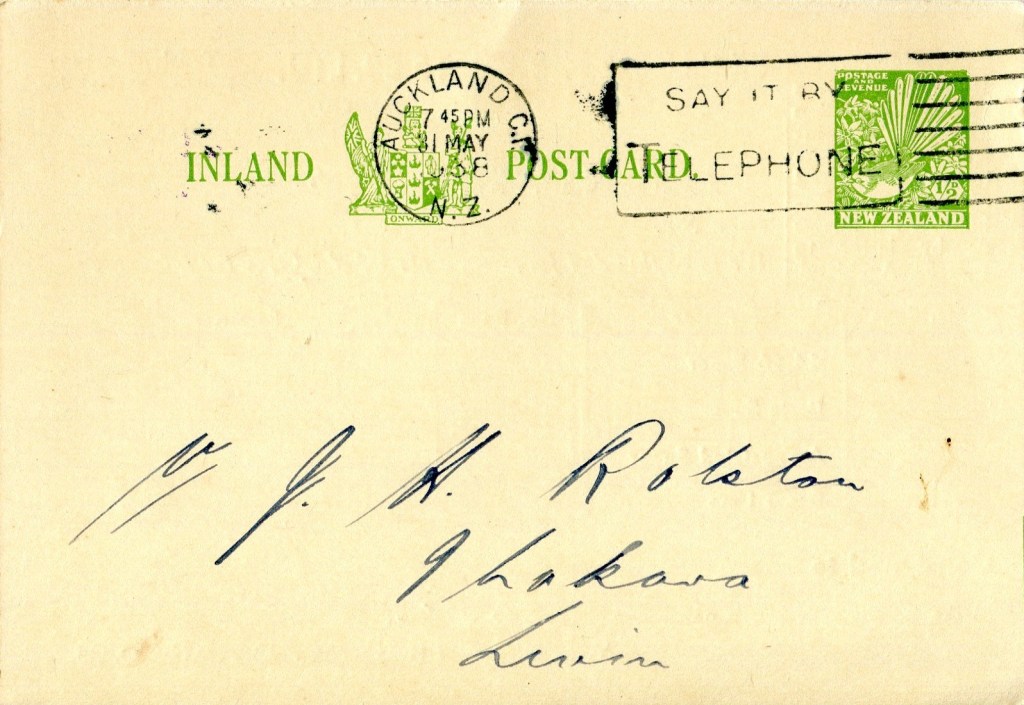 INLAND POST CARD
ONWARD
AUCKLAND C.P.
7 45 PM
31 MAY
1938
N.Z.
SAY IT BY
TELEPHONE
POSTAGE
AND
REVENUE
NEW ZEALAND
J. H. Rolston
Ihakara
Levin